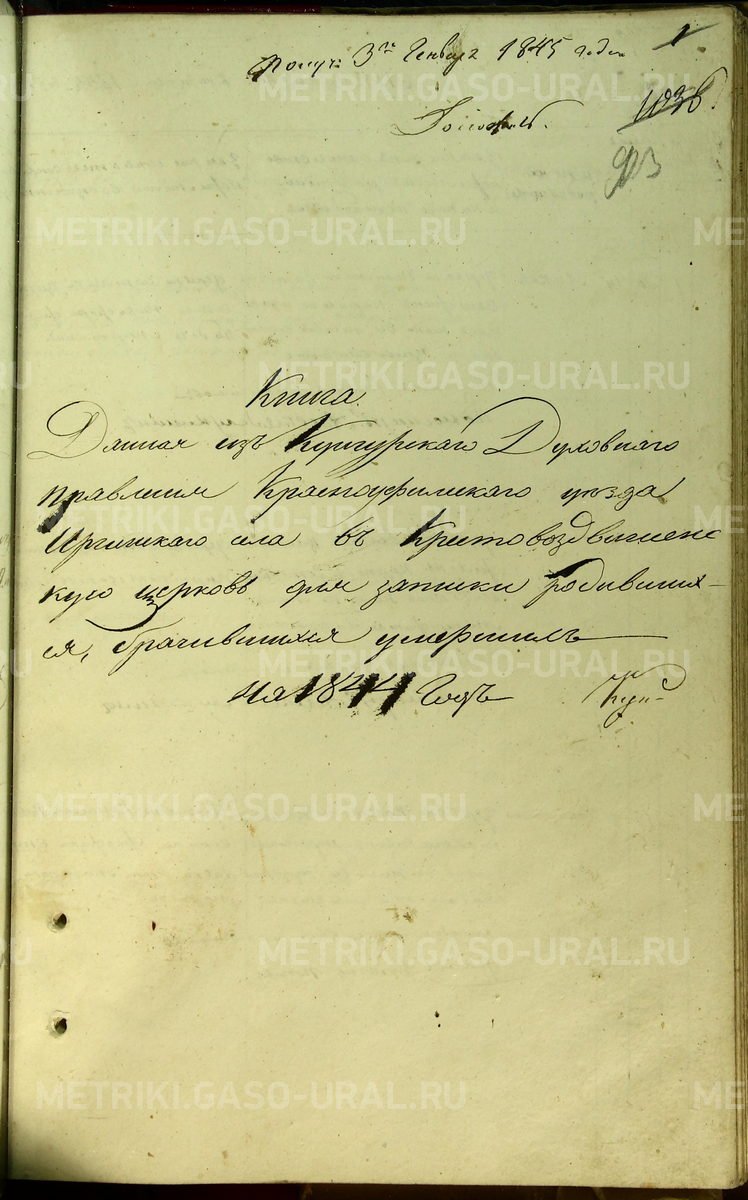 Получ: 3го Генваря 1845 года
1
903
Книга
Данная изъ Кунгурскаго Духовнаго
правления Красноуфимскаго уезда
Иргинскаго села въ Крестовоздвиженс
кую церковь для записки родивших-
ся, брачившихся умершихъ
На 1844 Годъ
METRIKI.GASO-URAL.RU